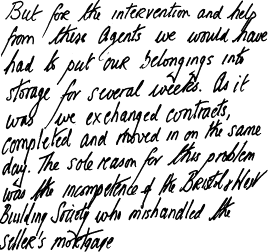 But for the intervention and help
from these Agents we would have
had to put our belongings into
storage for several weeks. As it
was we exchanged contracts,
completed and moved in on the same
day. The sole reason for this problem
was the incompetence of the Bristol & West
Building Society who mishandled the
seller's mortgage